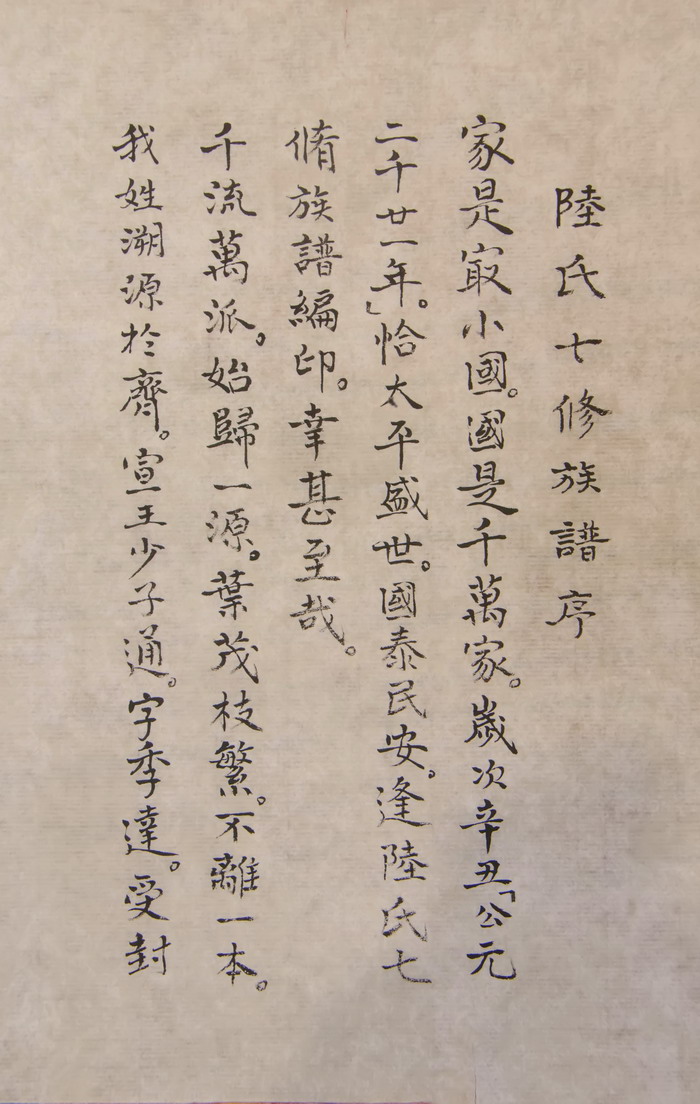 陸氏七修族譜序
家是最小國。國是千萬家。歲次辛丑「公元
二千廿一年」。恰太平盛世。國泰民安。逢陸氏七
脩族譜編印。幸甚至哉。
千流萬派。始歸一源。葉茂枝繁。不離一本。
我姓溯源於齊。宣王少子通。字季達。受封